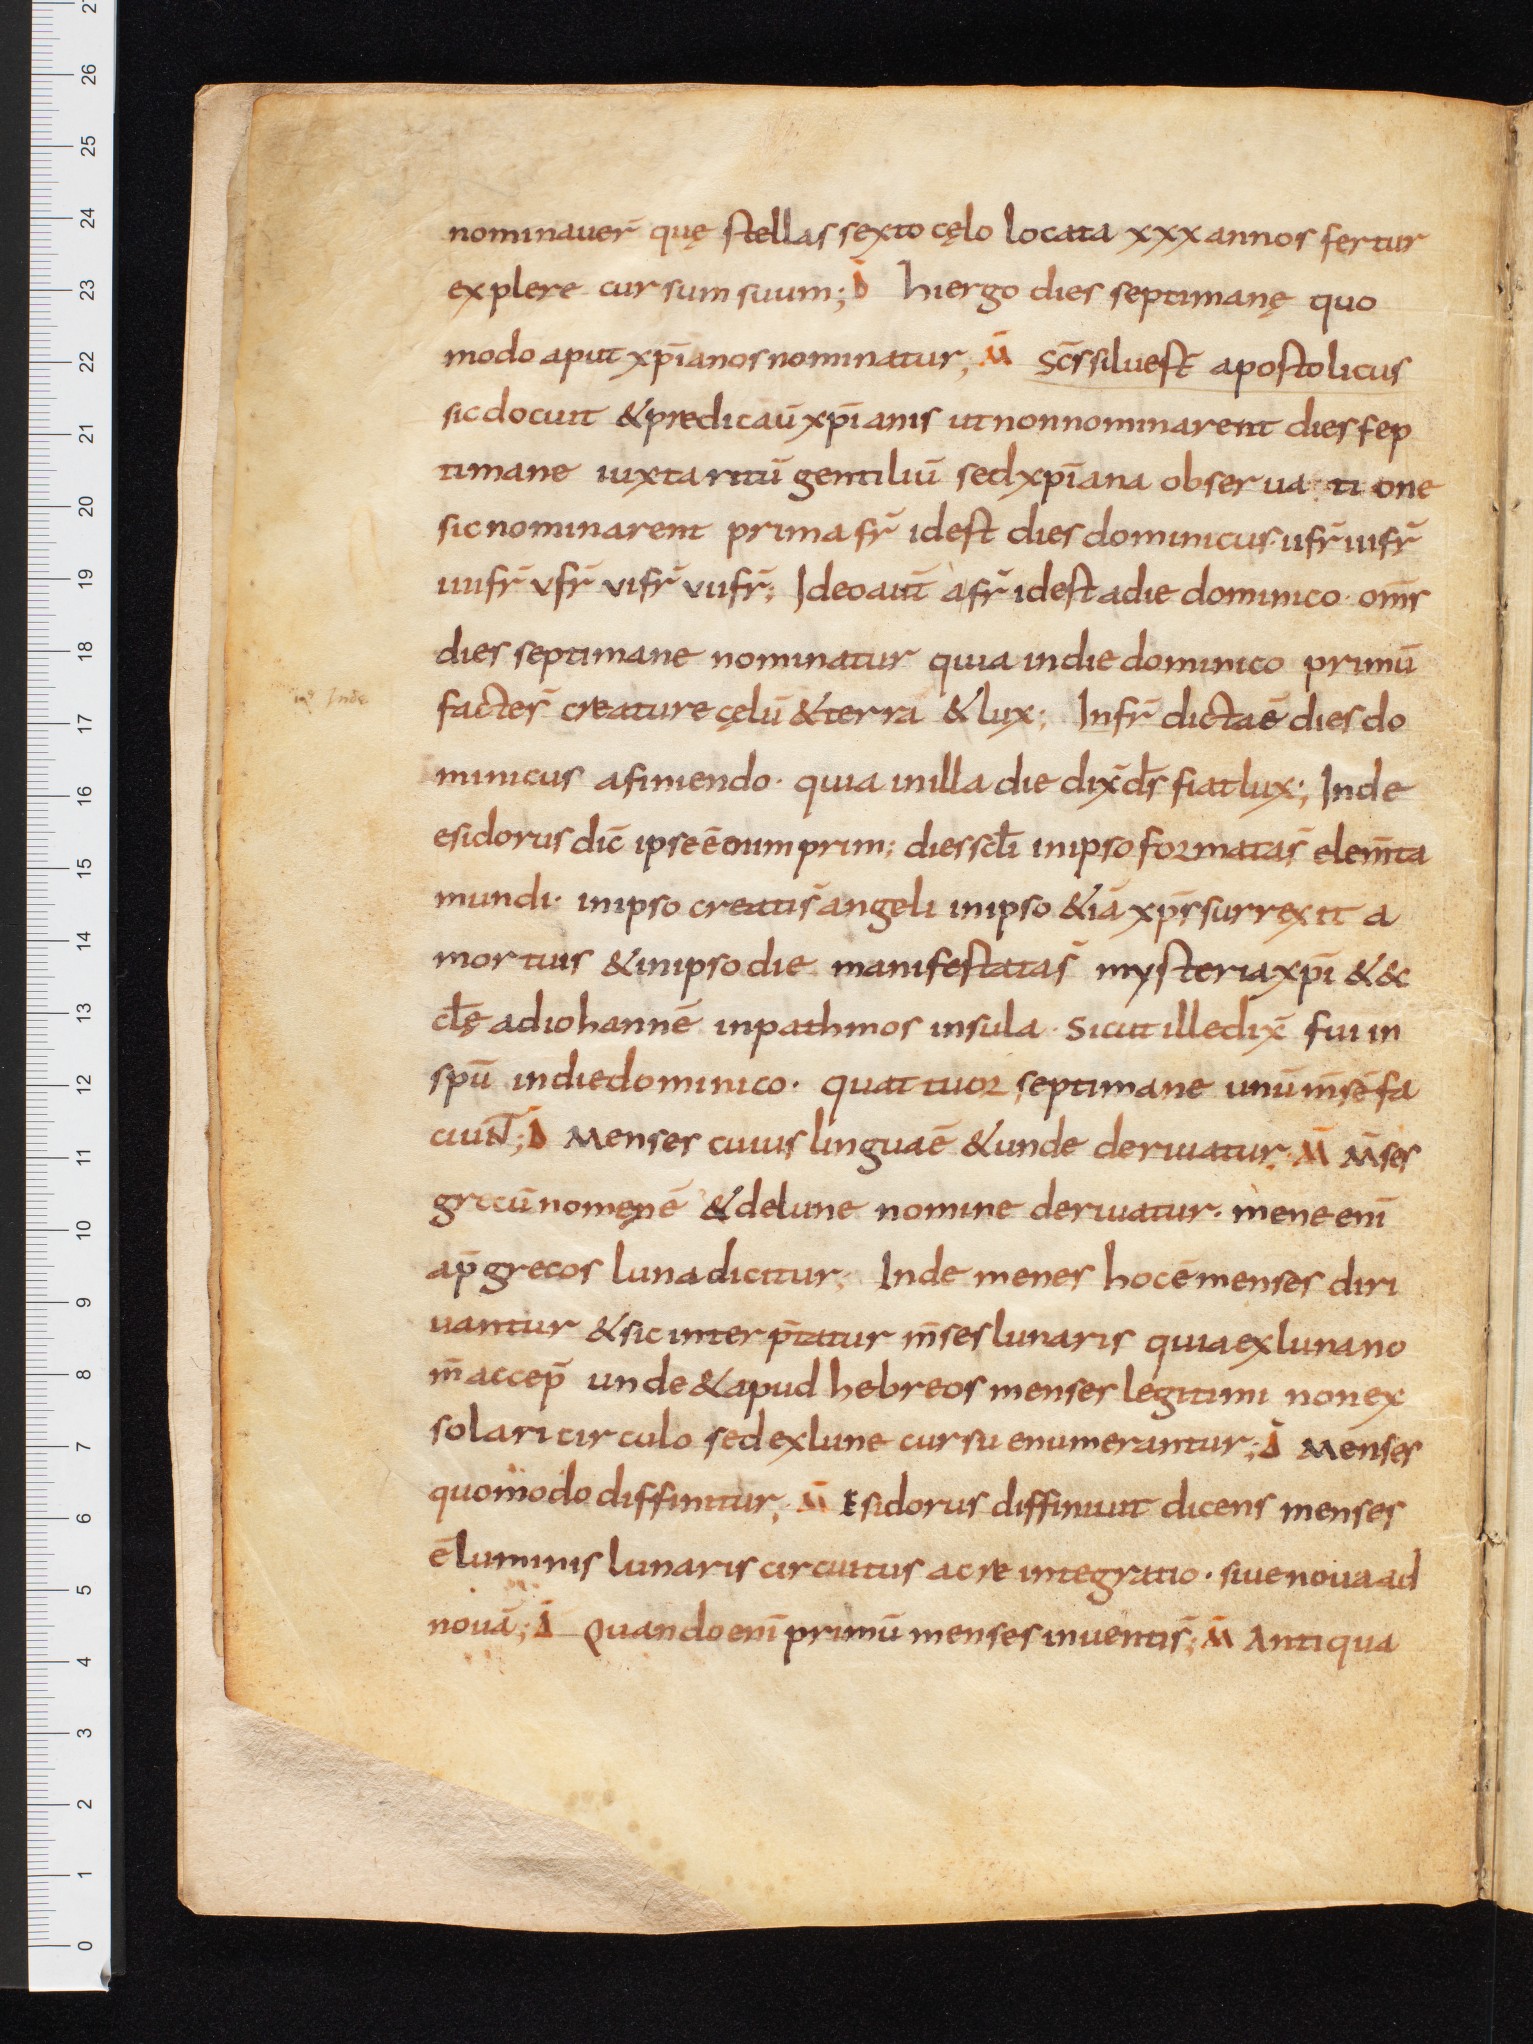 nominauer̄ quę stellas sexto cęlo locata xxx annos fertur
explere cursum suum; D̄ hi ergo dies septimanę quo
modo aput xp̄ianos nominatur; M̄ Sc̄s siluest̄ apostolicus
sic docuit & predicau̅ xp̄ianis ut non nominarent dies sep
timane iuxta ritū gentiliū sed xp̄iana obserua ti one
sic nominarent prima fr̄ id est dies dominicus· ii fr̄ iii fr̄
iiii fr̄ v fr̄ vi fr̄ vii fr̄; Ideo aut̄ a fr̄ id est a die dominico· om̄s
dies septimane nominatur quia in die dominico primū
facte s̄ creature cęlū & terrā & lux; In fr̄ dicta ē dies do
minicus a finiendo· quia in illa die dix̄ ds̄ fiat lux; Inde
esidorus dic̄ ipse ē enim prim; dies scl̄i in ipso formata s̄ elem̄ta
mundi· in ipso creati s̄ angeli in ipso & iā xp̄s surrexit a
mortuis & in ipso die manifestata s̄ mysteria xp̄i & &c
cl̄ę ad iohannē in pathmos insula· Sicut ille dix̄ fui in
spū in die dominico· quattuor septimane unū m̄sē fa
ciuÑ; D̄ Menses cuius lingua ē & unde deriuatur; M̄ M̄ses
grecū nomen ē & de lune nomine deriuatur· mene eni̅
ap̄ grecos luna dicitur; Inde menes hoc ē menses diri
uantur & sic interp̄tatur m̄ses lunaris quia ex luna no
m̄ accep̄ unde & apud hebreos menses legitimi non ex
solari circulo sed ex lune cursu enumerantur; D̄ Menses
quomodo diffinitur; M̄ Esidorus diffiniuit dicens menses
ē luminis lunaris circuitus ac re integratio· siue noua ad
nouā; D̄ Quando eni̅ primū menses inuenti s̄; M̄ Antiqua